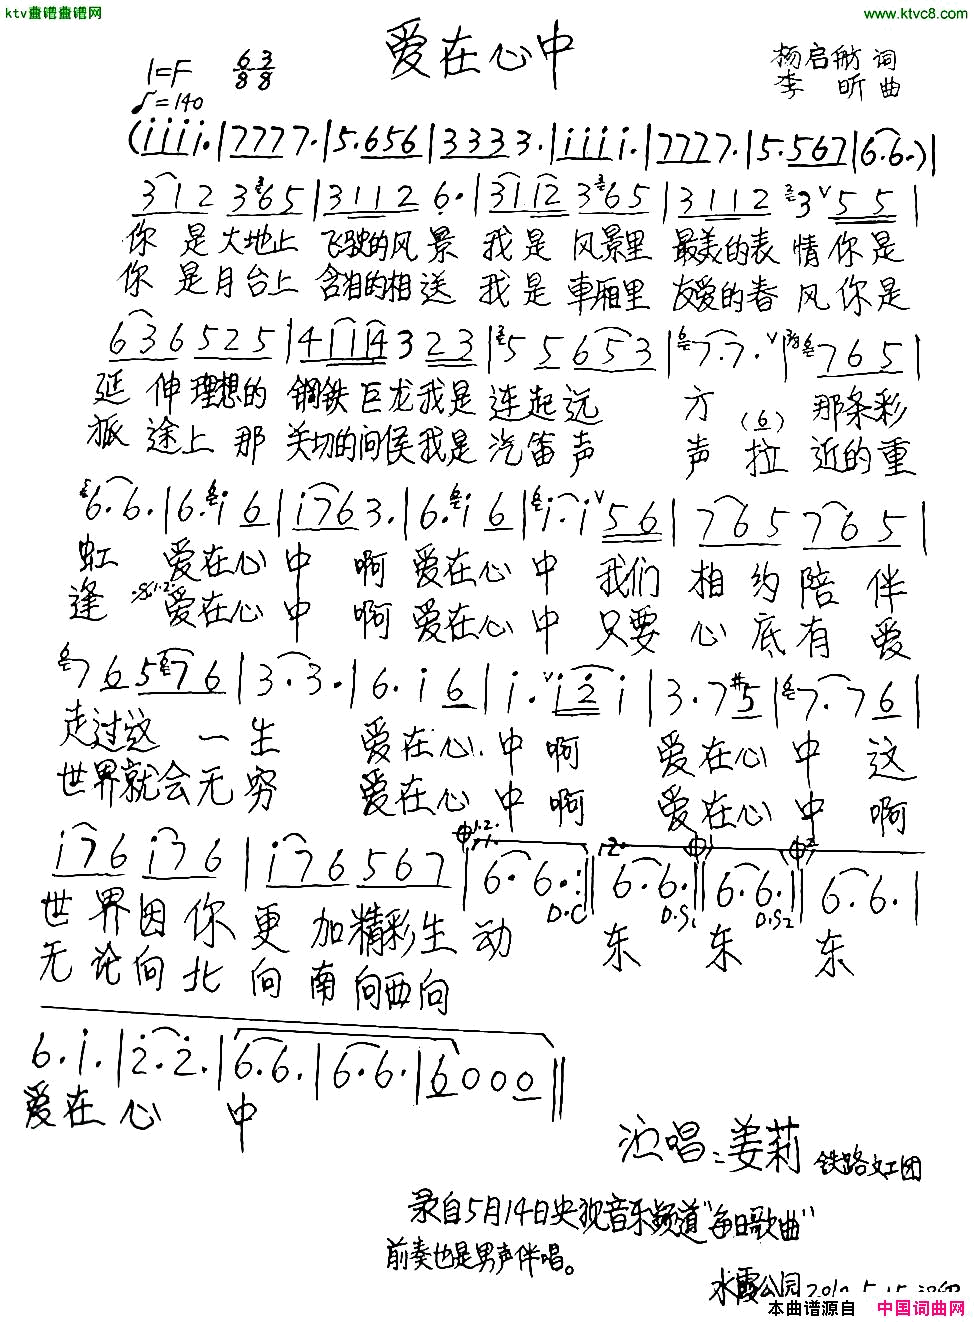 ktv歌谱歌谱网
www.ktvc8.com
爱在心中
1=F 6/8 3/8
♩=140
杨启舫 词
李昕 曲
(i i i i. | 7 7 7 7. | 5. 6 5 6 | 3 3 3 3. | i i i i. | 7 7 7 7. | 5. 5 6 7 | 6. 6.) |
3 1 2 3 6 5 | 3 1 1 2 6. | 3 1 1 2 3 6 5 | 3 1 1 2 3 5 5 |
你是大地上 飞驶的风景 我是风景里 最美的表情你是
你是月台上 含泪的相送 我是车厢里 友爱的春风你是
6 3 6 5 2 5 | 4 1 1 4 3 2 3 | 5 5 6 5 3 | 7. 7. | 7 6 5 |
延伸理想的 钢铁巨龙我是连起远方 那条彩
旅途上那 关切的问侯我是汽笛声声 (6) 拉近的重
6. 6. | 6. i 6 | i 7 6 3. | 6. i 6 | i. i 5 6 | 7 6 5 7 6 5 |
虹 爱在心中 啊 爱在心中 我们相约陪伴
逢 爱在心中 啊 爱在心中 只要心底有爱
7 6 5 7 6 | 3. 3. | 6. i 6 | i. i 2 i | 3. 7 #5 | 7. 7 6 |
走过这一生 爱在心中啊 爱在心中这
世界就会无穷 爱在心中啊 爱在心中啊
i 7 6 i 7 6 | i 7 6 5 6 7 | 6. 6. :|| 6. 6. || 6. 6. || 6. 6. |
D.C D.S1 D.S2
世界因你更加精彩生动 东 东 东
无论向北向南向西向
6. i. | 2. 2. | 6. 6. | 6. 6. | 6 0 0 0 ||
爱在心中
演唱：姜莉 铁路文工团
录自5月14日央视音乐频道"每日歌曲"
前奏也是男声伴唱。
水霞公园
本曲谱源自 中国词曲网